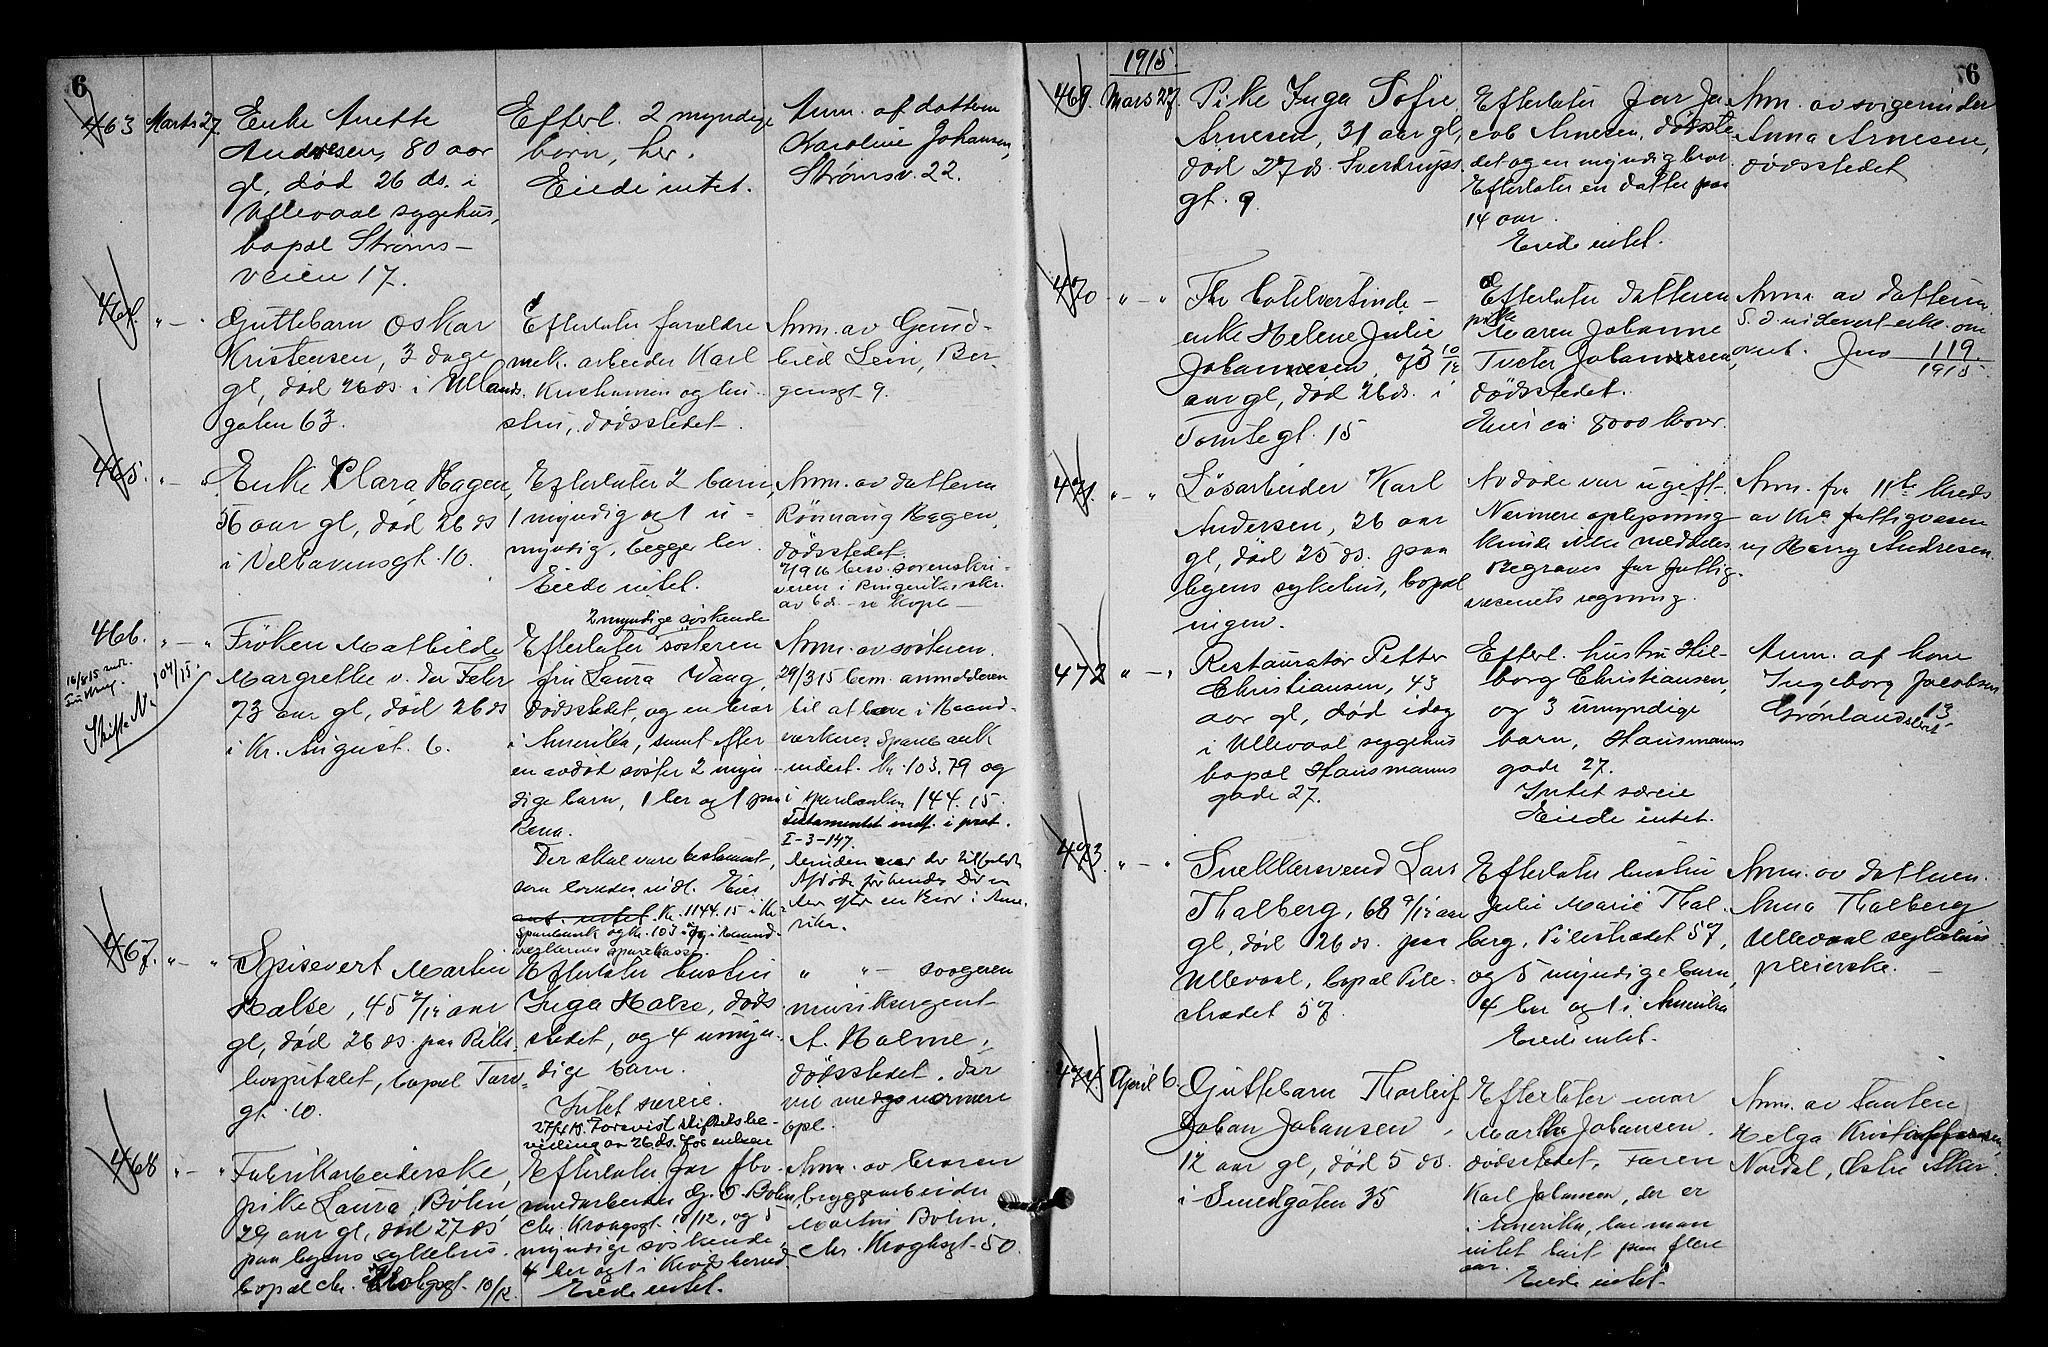 6
463 Marts 27.
Enke Anette
Andresen, 80 aar
gl, død 26 ds. i
Ullevaal sygehus,
bopæl Strøms-
veien 17.
Efterl. 2 myndige
børn, her.
Eiede intet.
Anm. af datteren
Karoline Johansen,
Strømsv. 22.
464. " — "
Guttebarn Oskar
Kristensen, 3 dage
gl, død 26 ds. i Ullevaals
gaten 63.
Efterlater forældre
mek. arbeider Karl
Kristensen og hu-
stru, dødsstedet.
Anm. av Gund-
hild Lein, Ber-
gensgt 9.
465. " — "
Enke Clara Hagen,
56 aar gl, død 26 ds
i Welhavensgt. 10.
Efterlater 2 barn,
1 myndig og 1 u-
myndig, begge her.
Eiede intet.
Anm. av datteren
Rönnaug Hagen,
dödsstedet.
sorenskri-
veren i Ringerike
av 6 ds.
466. " — "
Fröken Mathilde
Margrethe v. der Fehr
73 aar gl, død 26 ds
i Kr. August. 6.
16/8 15
Skifte No 104/15.
2 myndige søskende
Efterlater søsteren
fru Laura Wang,
dødsstedet, og en bror
i Amerika, samt efter
en avdød søster 2 myn-
dige barn, 1 her og 1 paa
Rena.
Der skal være testament,
som loredes indl. Eier
ant. intet. Kr. 1144.15 i Kr.
Sparebank og kr. 103.79 i Haand-
verkernes sparekasse.
Anm. av søsteren.
29/3 15 bem. anmelderen
til at have i Haand-
værkeres Sparebank
indest. kr. 103.79 og
i sparebanken 144.15.
Testamentet indf. i prot.
I-3-147.
467. " — "
Spisevert Martin
Halse, 45 7/12 aar
gl, død 26 ds. paa Riks-
hospitalet, bopæl Torv-
gt. 10.
Efterlater hustru
Inga Halse, døds
stedet, og 4 umyn-
dige barn.
Intet særeie.
27/4 15. Forevist skifterets be-
villing av 26 ds. for enken
" " — svogeren
musiksergent
A. Halme,
dødsstedet, der
vil medgi nærmere
opl.
468 " — "
Fabrikarbeiderske,
pike Laura Bohn
29 aar gl, død 27 ds
paa byens sykehus.
bopæl Chr. Krohgsgt. 10/12.
Efterlater far
murarbeider G. O. Bohn,
Chr. Kroghsgt. 10/12, og 5
myndige søskende,
4 her og 1 i Krødsherred.
Eiede intet.
Anm. av broren
bryggearbeider
Martin Bohn,
Chr. Kroghsgt. 50.
1915.
6
469. Mars 27.
Pike Inga Sofie
Arnesen, 31 aar gl,
død 27 ds. Sverdrups
gt. 9.
Efterlater far Ja-
cob Arnesen, dødsste-
det og en myndig bror.
Efterlater en datter paa
14 aar.
Eiede intet.
Anm. av svigerinden
Anna Arnesen,
dødsstedet
470 " — "
Fhv hotelvertinde-
enke Helene Julie
Johannesen, 73 10/12
aar gl, død 26 ds. i
Tomtegt. 15
Efterlater datteren
pike Maren Johanne
Tveter Johannesen,
dødsstedet.
Eier ca: 8000 kroner.
Anm. av datteren.
S. d. uskifte
Jno 119.
1915.
471. " — "
Løsarbeider Karl
Andersen, 26 aar
gl, død 25 ds. paa
byens sykehus, bopæl
ingen.
Avdøde var ugift.
Nærmere oplysning
kunde ikke meddeles
Begraves for fattig-
væsenets regning.
Anm. fra 11te kreds
av Kra fattigvæsen
v/ Harry Andresen.
472 " — "
Restauratør Petter
Christiansen, 43
aar gl, død idag
i Ullevaal sygehus
bopæl Hausmanns
gade 27.
Efterl. hustru Hil-
borg Christiansen,
og 3 umyndige
børn, Hausmanns
gade 27.
Intet særeie
Eiede intet.
Anm. af kone
Ingeborg Jacobsen
Grønlandsleret 13
473. " — "
Snekkersvend Lars
Thalberg, 68 9/12 aar
gl, død 26 ds. paa
Ullevaal, bopæl Pile-
strædet 57.
Efterlater hustru
Julie Marie Thal-
berg, Pilestrædet 57,
og 5 myndige barn,
4 her og 1 i Amerika
Eiede intet.
Anm. av datteren.
Anna Thalberg,
Ullevaal sykehus
pleierske.
474. April 6.
Guttebarn Thorleif
Johan Johansen,
12 aar gl, død 5 ds.
i Smedgaten 35
Efterlater mor
Martha Johansen.
dødsstedet. Faren
Karl Johansen, der er
i Amerika, har man
intet hørt paa flere
aar. Eiede intet.
Anm. av tanten
Helga Kristoffersen,
Nordal, Østre Aker.